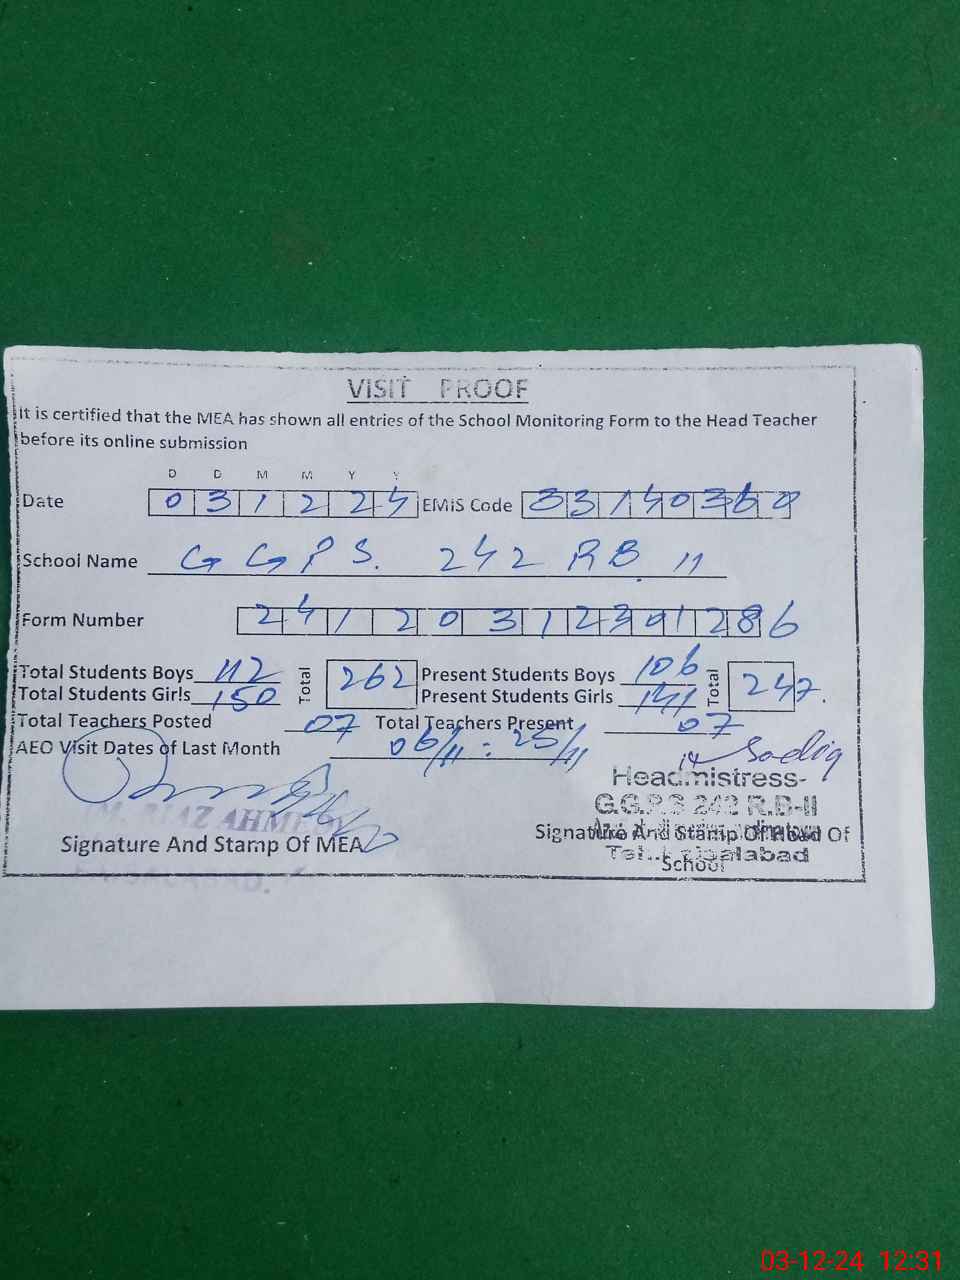 VISIT PROOF
It is certified that the MEA has shown all entries of the School Monitoring Form to the Head Teacher
before its online submission
D D M M Y Y
Date 031224 EMIS Code 33140360
School Name GGPS. 242 RB II
Form Number 24120312301286
Total Students Boys 112 Total 262 Present Students Boys 106 Total 247.
Total Students Girls 150 Present Students Girls 141
Total Teachers Posted 07 Total Teachers Present 07
AEO Visit Dates of Last Month 06/11 : 25/11
Sadiq
Headmistress-
G.G.P.S 242 R.B-II
AHMED
Signature And Stamp Of MEA
Signature And Stamp Of Head Of
School
03-12-24 12:31